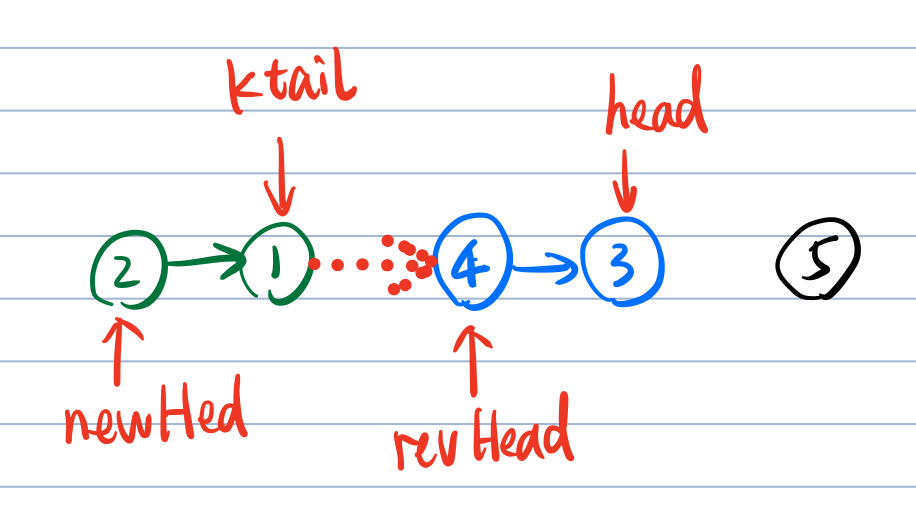 ktail
head
2 1 4 3 5
newHed
revHead